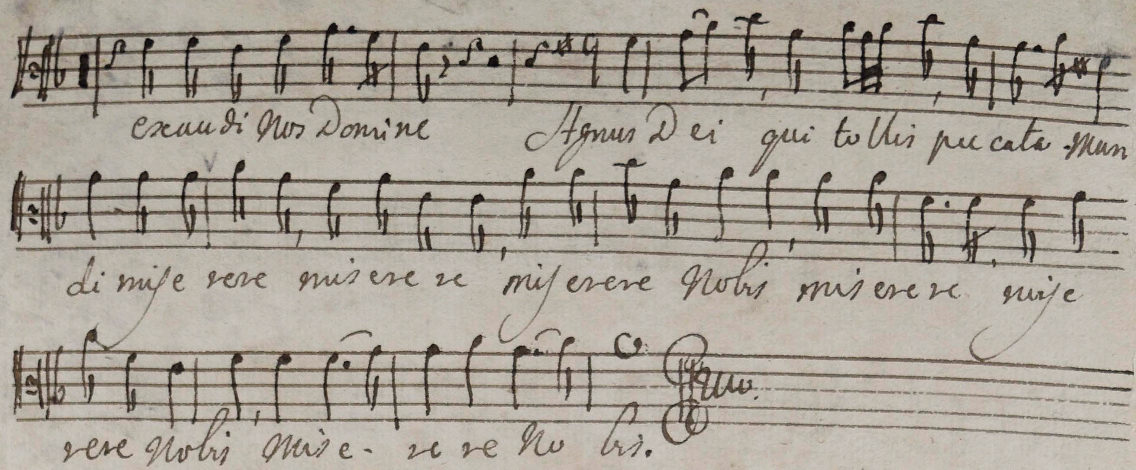 exaudi Nos Domine Agnus Dei qui tollis peccata Mun
di mise rere miserere re miserere Nobis miserere mise
rere Nobis Mise- re re No bis.